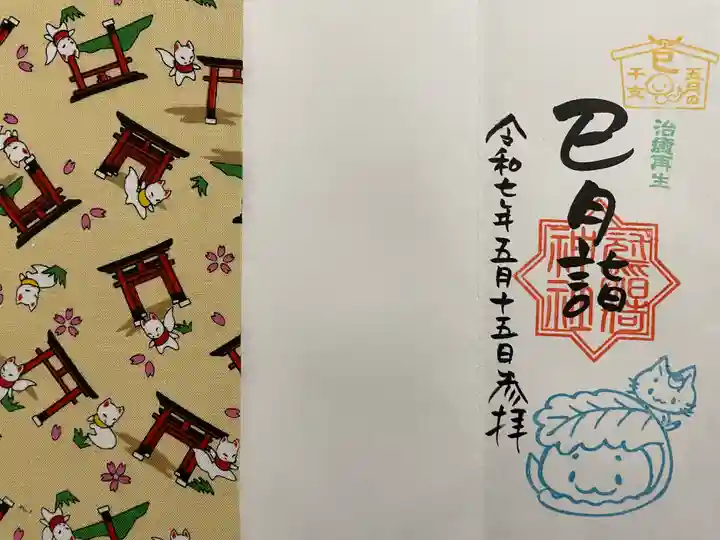 巳
五月の
干支
治癒再生
巳月詣
神社
令和七年五月十五日参拝